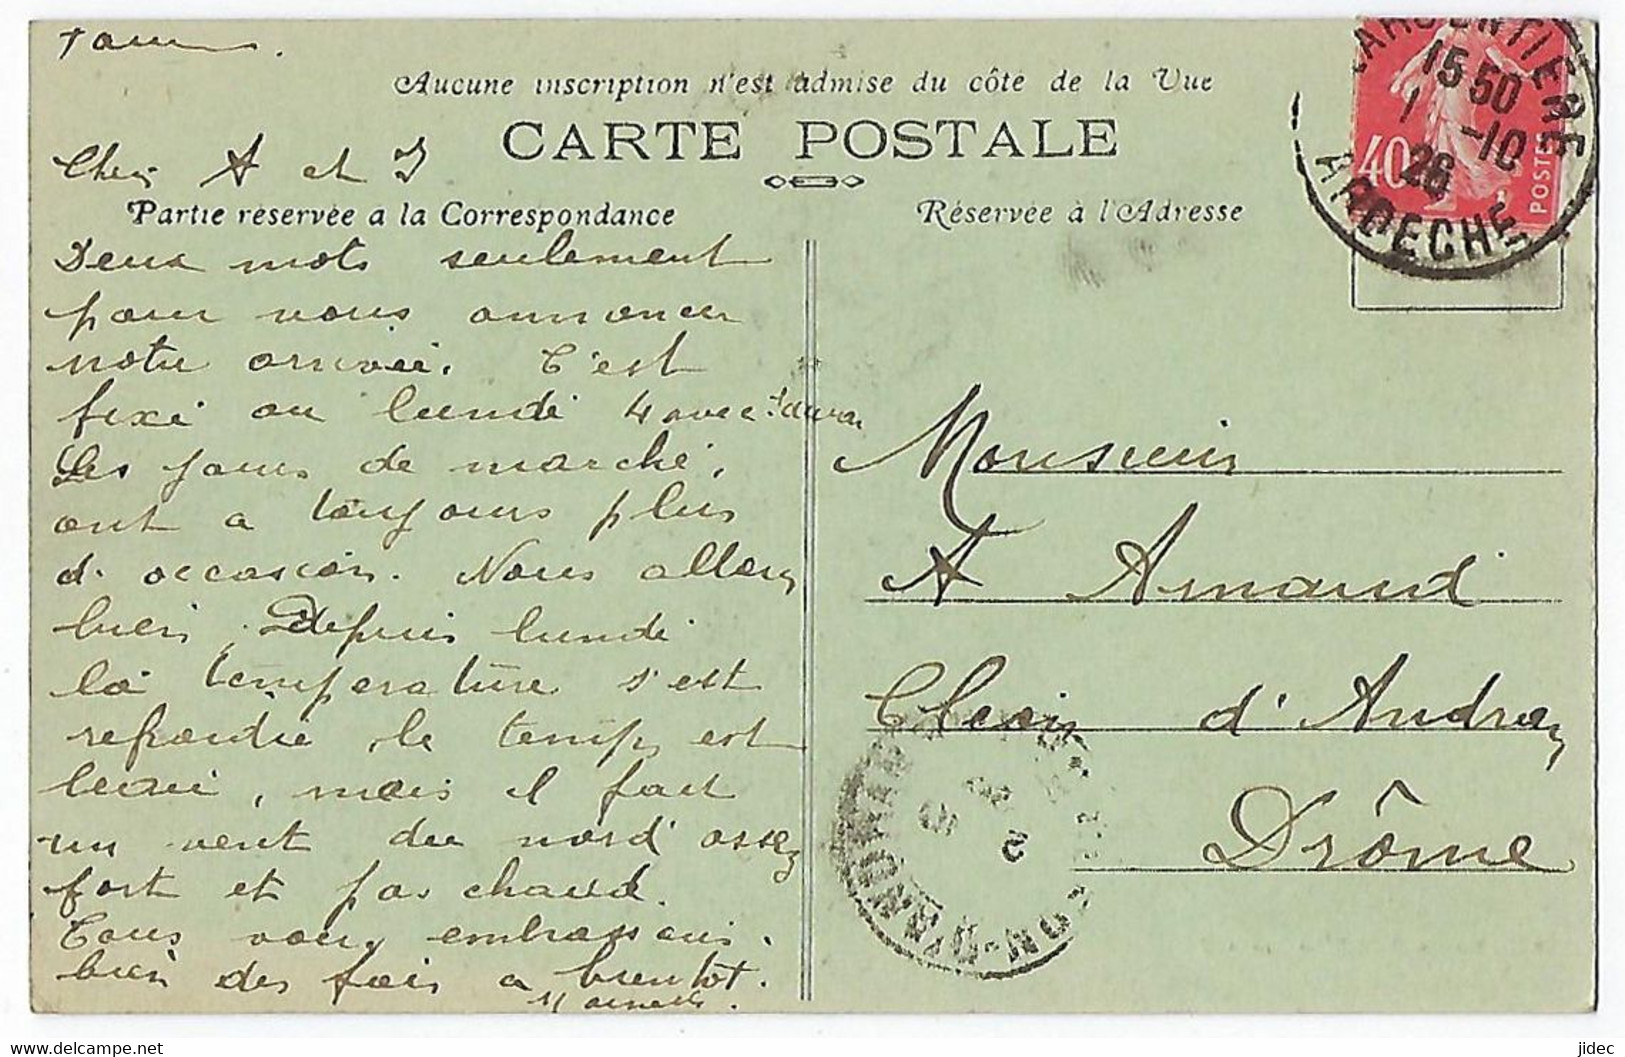 Aucune inscription n'est admise du côté de la Vue
CARTE POSTALE
Cher A et J
Partie réservée a la Correspondance
Réservée à l'Adresse
LARGENTIERE
15 50
1 -10
26
ARDECHE
40
POSTES
Deux mots seulement
pour vous annoncer
notre arrivée. C'est
fixé au lundi 4 avec
Les jours de marché,
ont a toujours plus
d. occasion. Nous allons
bien. Depuis lundi
la température s'est
refroidie, le temps est
beau, mais il fait
un vent du nord assez
fort et pas chaud.
Tous vous embrassons.
bien des fois a bientôt.
Monsieur
A Arnaud
Cleon d'Andran
Drôme
jidec
www.delcampe.net